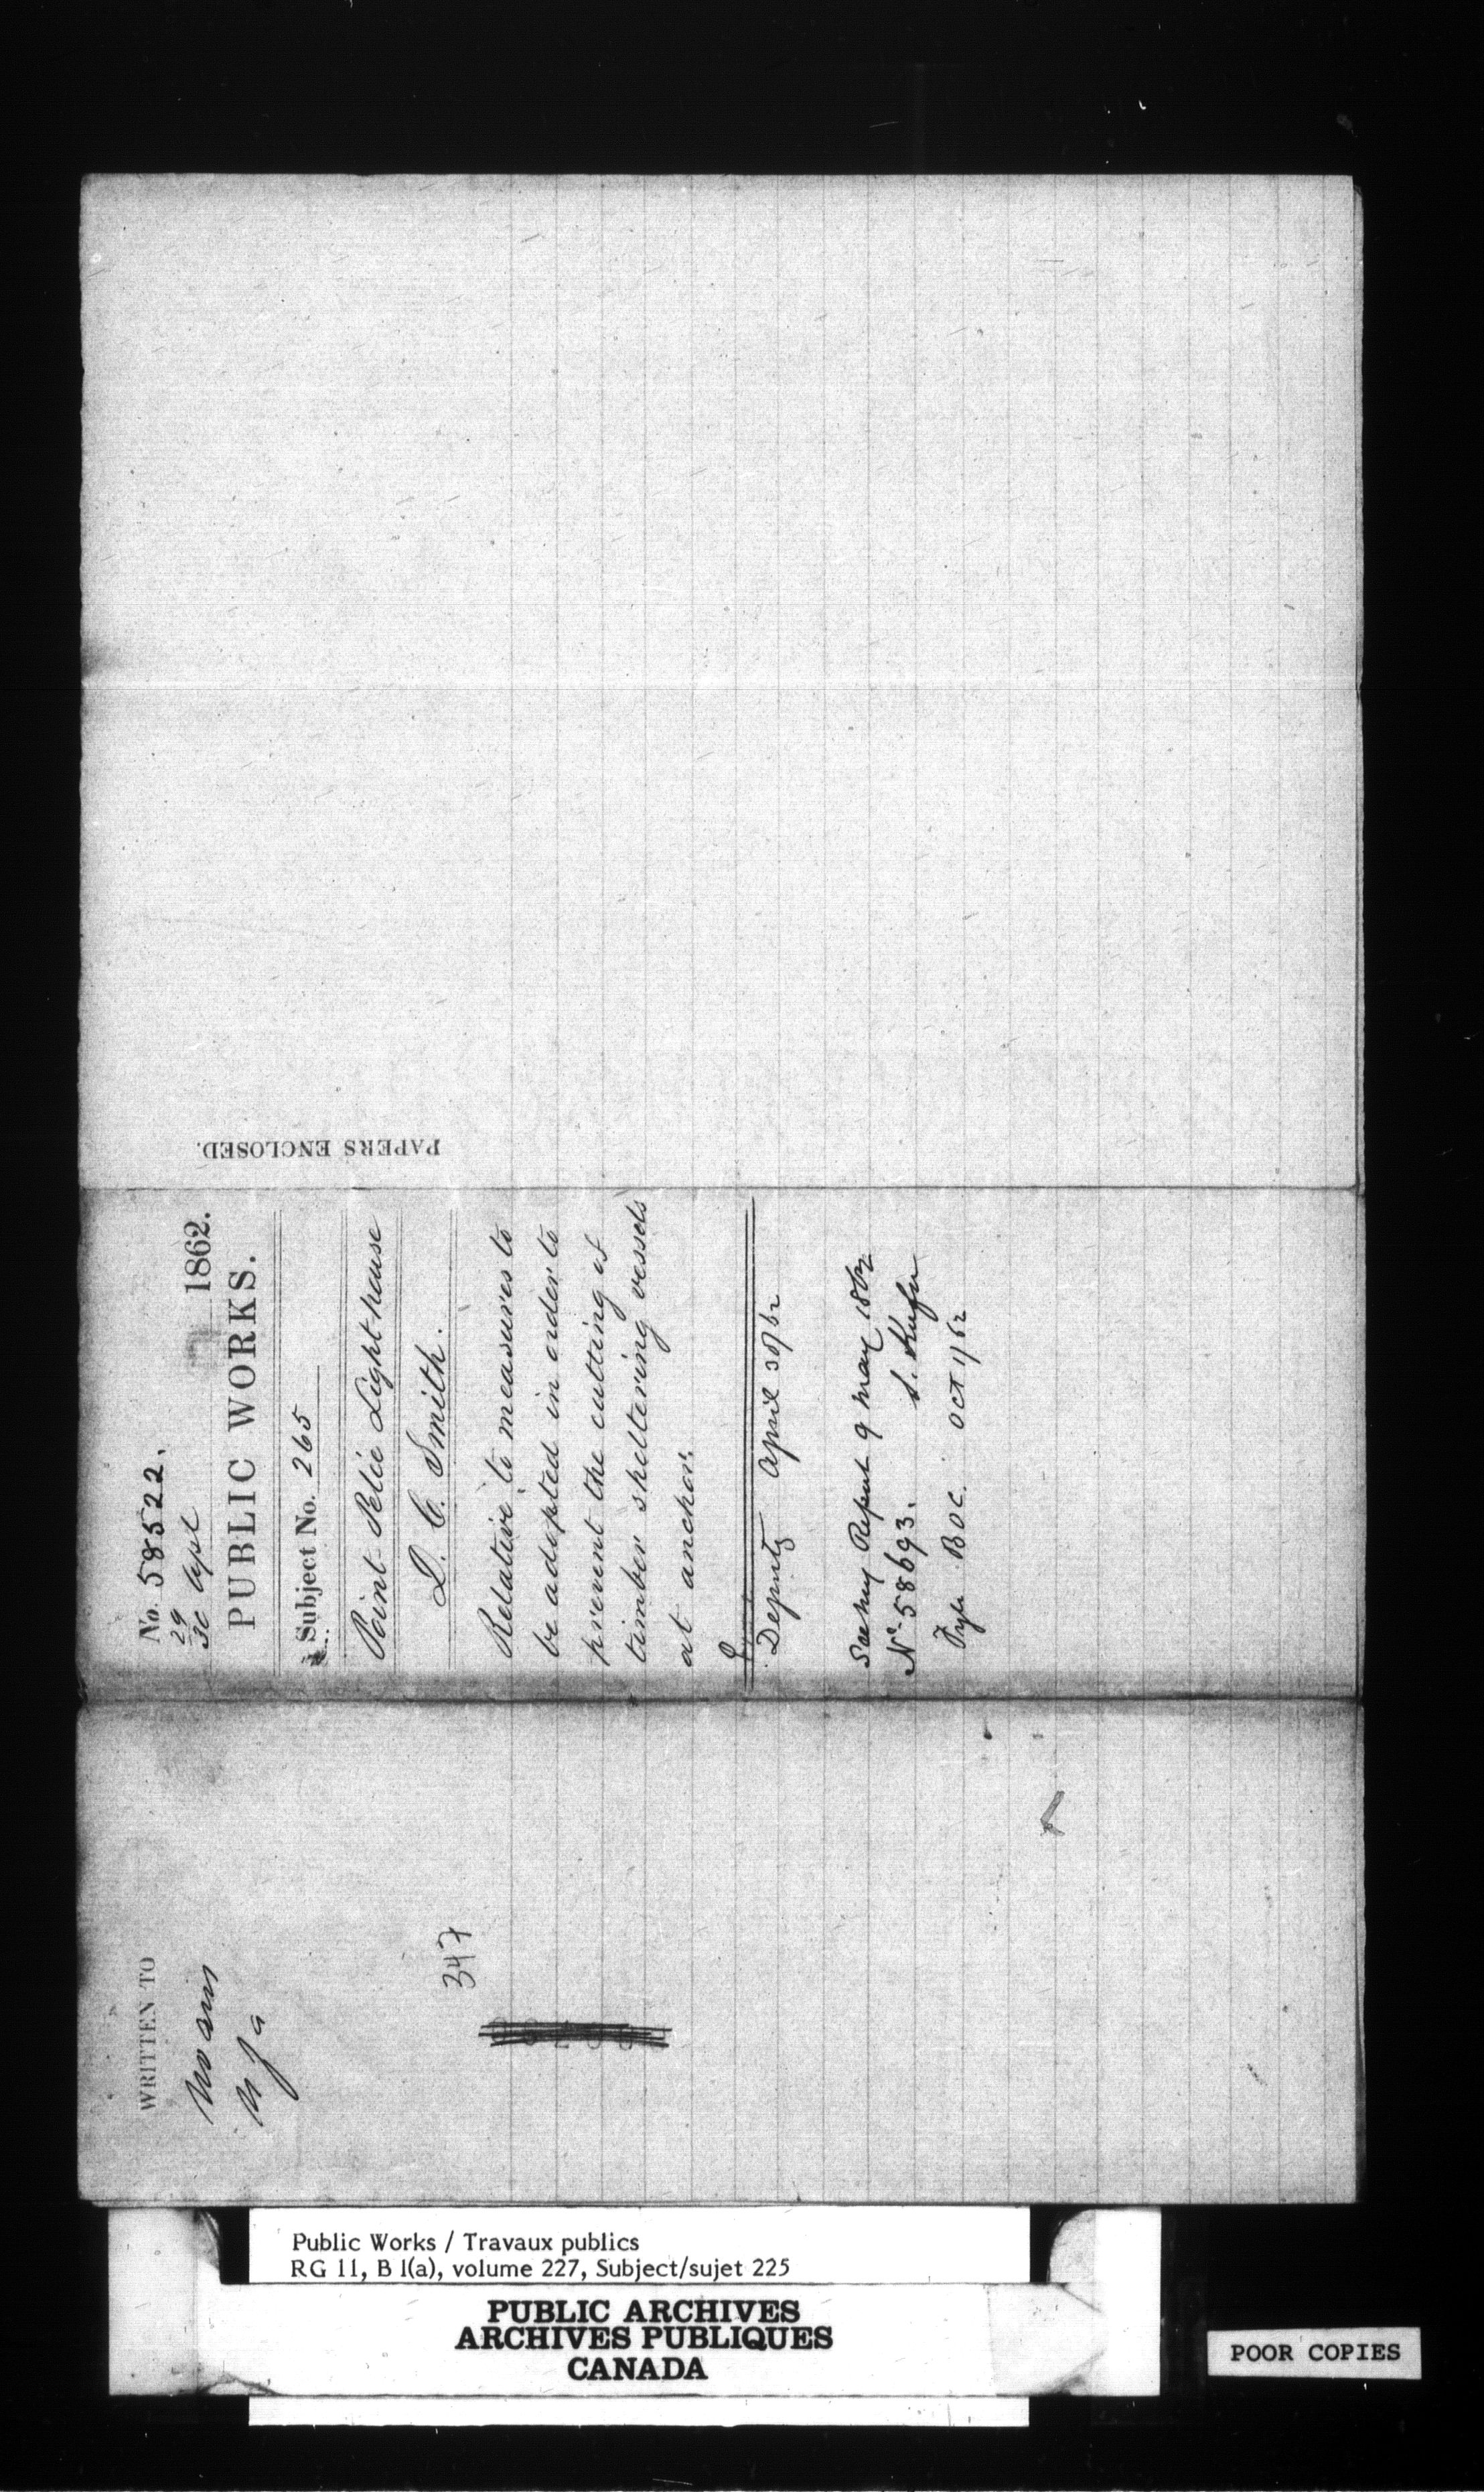 No. 58522.
29
30 Apl
1862.
PUBLIC WORKS.
Subject No. 265
Point Pelie Light house
D. C. Smith.
Relative to measures to
be adopted in order to
prevent the cutting of
timber sheltering vessels
at anchor.
Deputy April 30/62
See my Report 9 May 1862
No 58693.
Fyle B O C. Oct 1/62
PAPERS ENCLOSED.
WRITTEN TO
No ans
347
Public Works / Travaux publics
RG 11, B 1(a), volume 227, Subject/sujet 225
PUBLIC ARCHIVES
ARCHIVES PUBLIQUES
CANADA
POOR COPIES